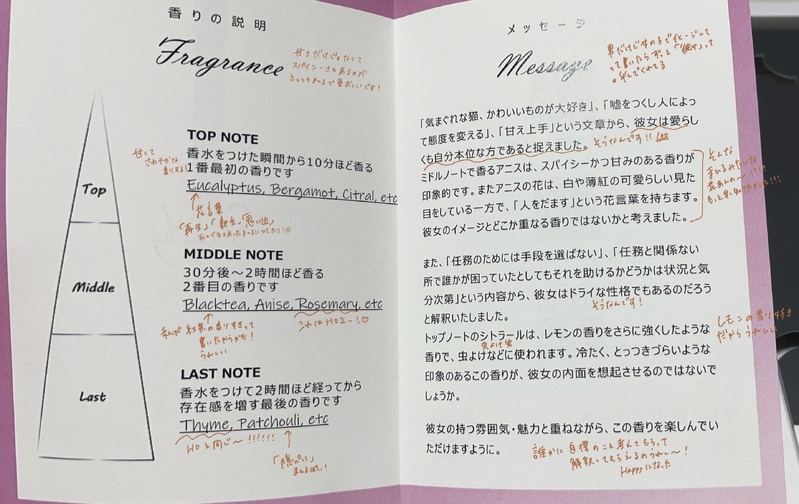 香りの説明
Fragrance
甘さだけじゃなくて
TOP NOTE
香水をつけた瞬間から10分ほど香る
1番最初の香りです
Eucalyptus, Bergamot, Citral, etc
花言葉
「再生」「新生」「思い出」
Top
MIDDLE NOTE
30分後～2時間ほど香る
2番目の香りです
Blacktea, Anise, Rosemary, etc
私が紅茶の香りすきって
書いたからかも!
うれしい
これはHO2ー!♡
Middle
LAST NOTE
香水をつけて2時間ほど経ってから
存在感を増す最後の香りです
Thyme, Patchouli, etc
HOと同じ～!!!!!!
Last
メッセージ
Message
「気まぐれな猫、かわいいものが大好き」、「嘘をつくし人によっ
て態度を変える」、「甘え上手」という文章から、彼女は愛らし
くも自分本位な方であると捉えました。
そうなんです!!
ミドルノートで香るアニスは、スパイシーかつ甘みのある香りが
印象的です。またアニスの花は、白や薄紅の可愛らしい見た
目をしている一方で、「人をだます」という花言葉を持ちます。
彼女のイメージとどこか重なる香りではないかと考えました。
また、「任務のためには手段を選ばない」、「任務と関係ない
所で誰かが困っていたとしてもそれを助けるかどうかは状況と気
分次第」という内容から、彼女はドライな性格でもあるのだろう
と解釈いたしました。
そうなんです!
トップノートのシトラールは、レモンの香りをさらに強くしたような
香りで、虫よけなどに使われます。冷たく、とっつきづらいような
印象のあるこの香りが、彼女の内面を想起させるのではないで
しょうか。
虫よけ笑
レモンの香りすき
だからうれしい
彼女の持つ雰囲気・魅力と重ねながら、この香りを楽しんでい
ただけますように。
誰かに自探のこと考えてもらって
解釈してもらえるのうれしい～!
Happyになった